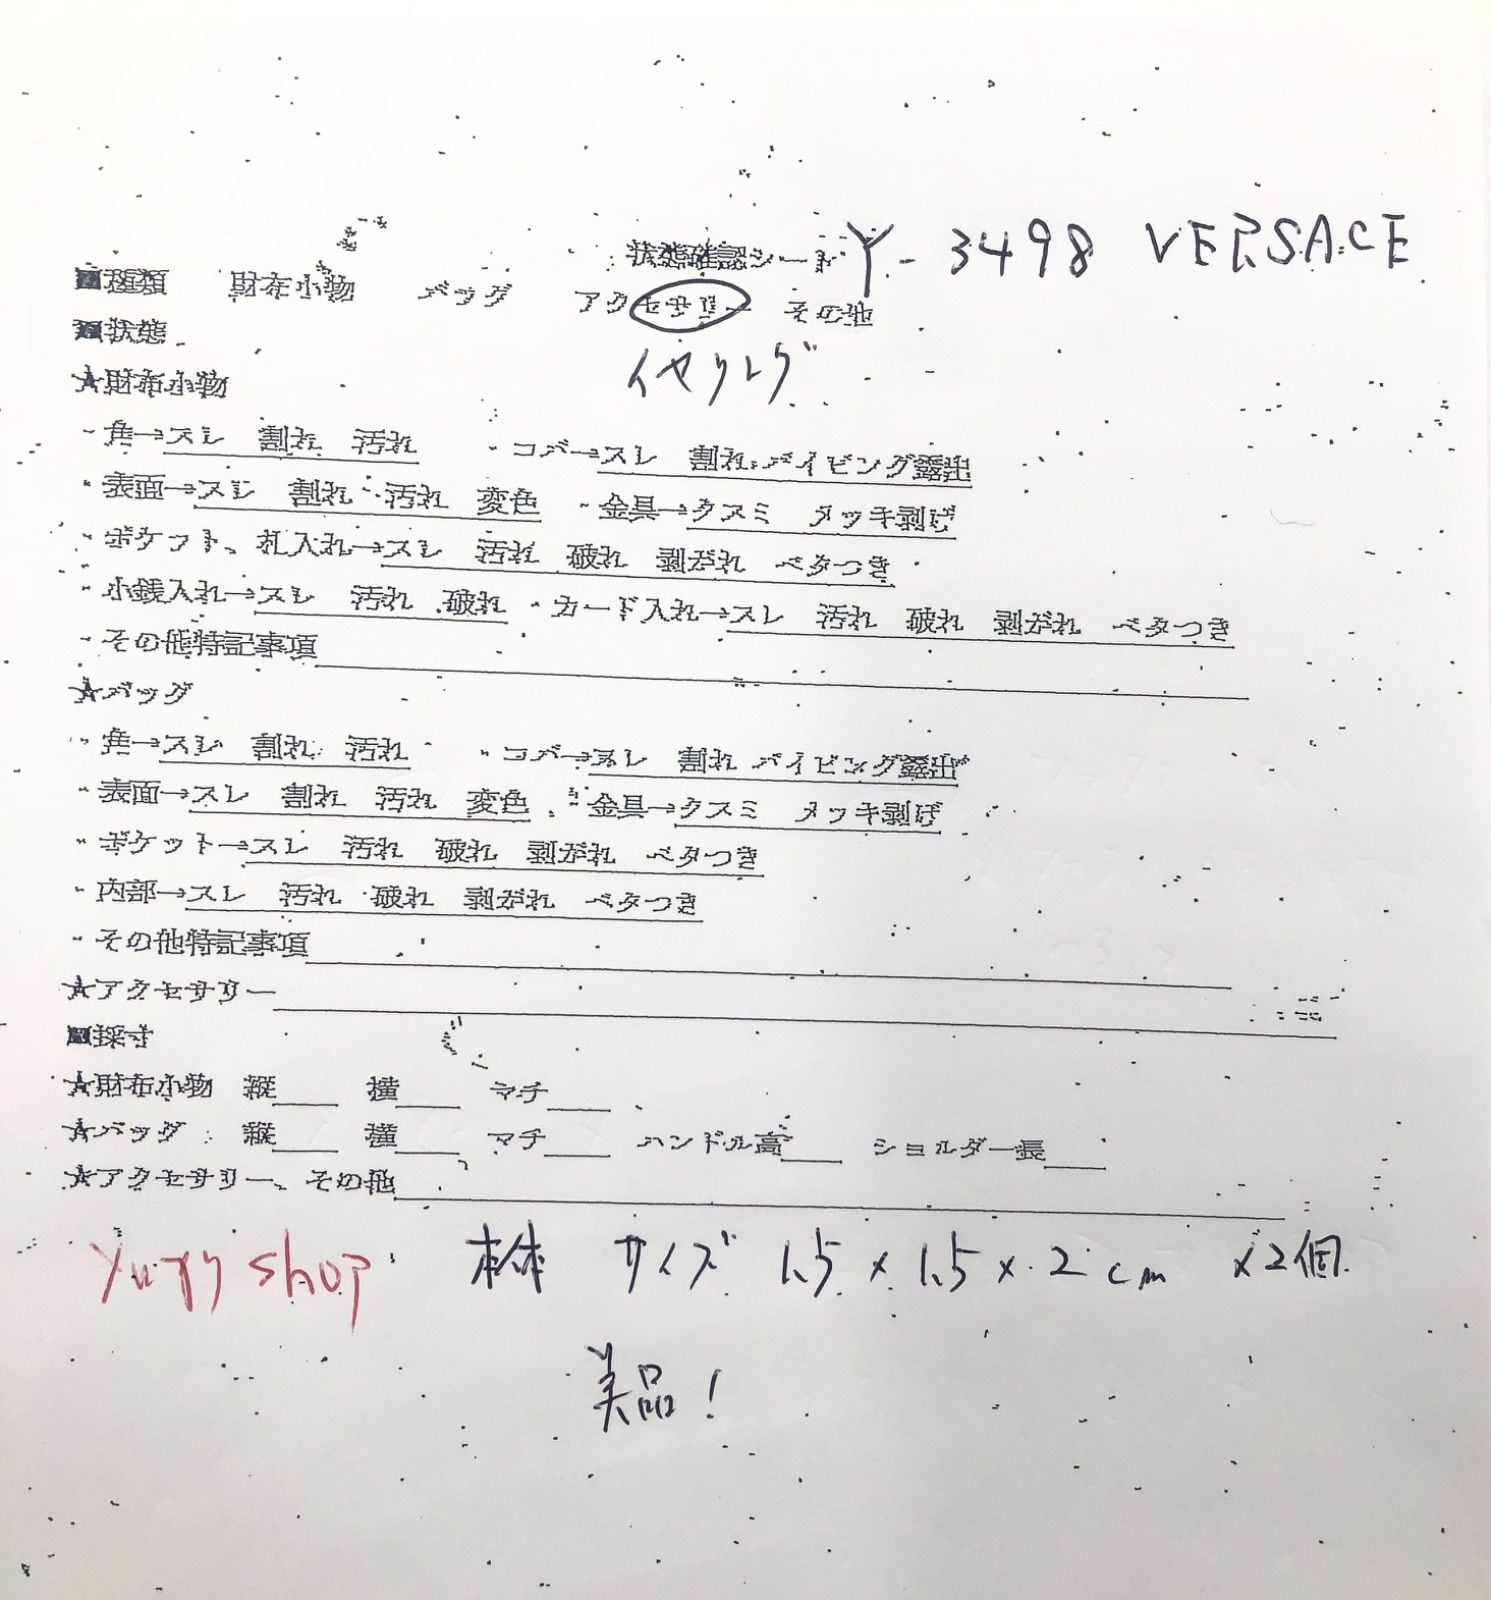 状態確認シート Y-3498 VERSACE
■種類 財布小物 バッグ アクセサリー その他
■状態 イヤリング
★財布小物
・角→スレ 割れ 汚れ ・コバ→スレ 割れ パイピング露出
・表面→スレ 割れ 汚れ 変色 ・金具→クスミ メッキ剥げ
・ポケット、札入れ→スレ 汚れ 破れ 剥がれ ベタつき
・小銭入れ→スレ 汚れ 破れ ・カード入れ→スレ 汚れ 破れ 剥がれ ベタつき
・その他特記事項
★バッグ
・角→スレ 割れ 汚れ ・コバ→スレ 割れ パイピング露出
・表面→スレ 割れ 汚れ 変色 ・金具→クスミ メッキ剥げ
・ポケット→スレ 汚れ 破れ 剥がれ ベタつき
・内部→スレ 汚れ 破れ 剥がれ ベタつき
・その他特記事項
★アクセサリー
■採寸
★財布小物 縦 横 マチ
★バッグ 縦 横 マチ ハンドル高 ショルダー長
★アクセサリー、その他
shop 本体 サイズ 1.5×1.5×2cm ×2個
美品!